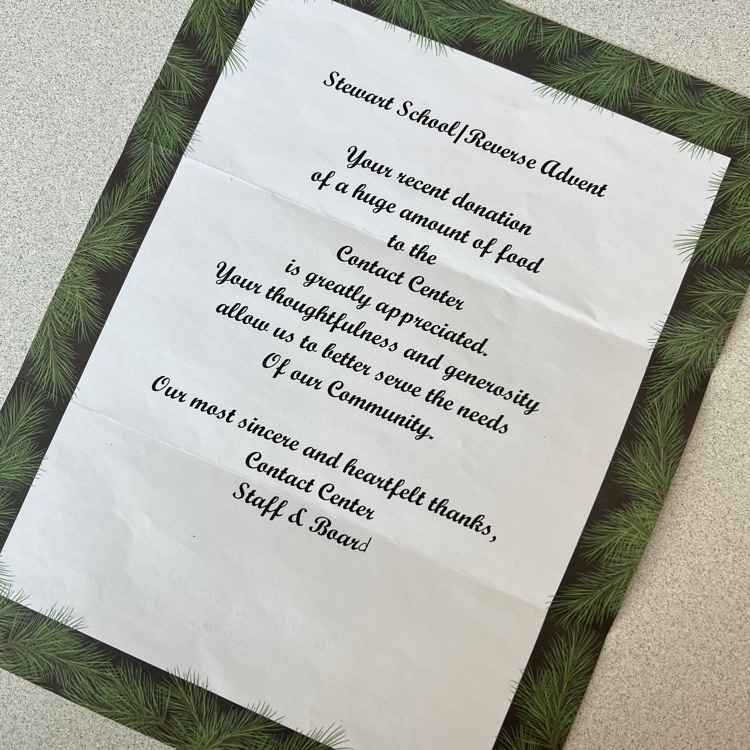 Stewart School/Reverse Advent
Your recent donation
of a huge amount of food
to the
Contact Center
is greatly appreciated.
Your thoughtfulness and generosity
allow us to better serve the needs
Of our Community.
Our most sincere and heartfelt thanks,
Contact Center
Staff & Board